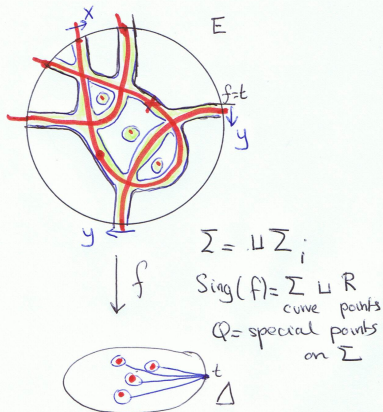 x
E
f=t
y
y
Σ = ⊔ Σ_i
f
Sing(f) = Σ ⊔ R
curve points
Q = special points
on Σ
t
Δ